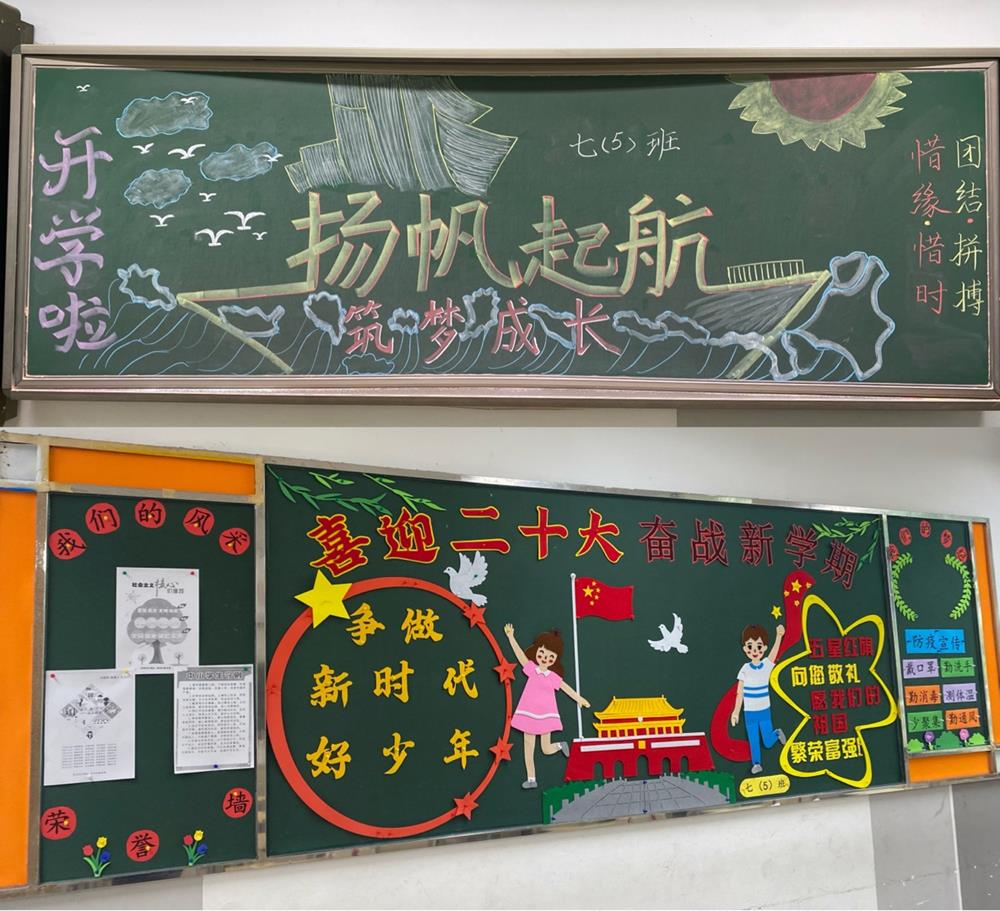 开学啦
七(5)班
扬帆起航
筑梦成长
团结·拼搏
惜缘·惜时
我们的风采
社会主义核心价值观
中小学生守则
荣誉墙
喜迎二十大 奋战新学期
争做
新时代
好少年
五星红旗
向您敬礼
愿我们的
祖国
繁荣富强!
七(5)班
防疫宣传
戴口罩 勤洗手
勤消毒 测体温
少聚集 勤通风